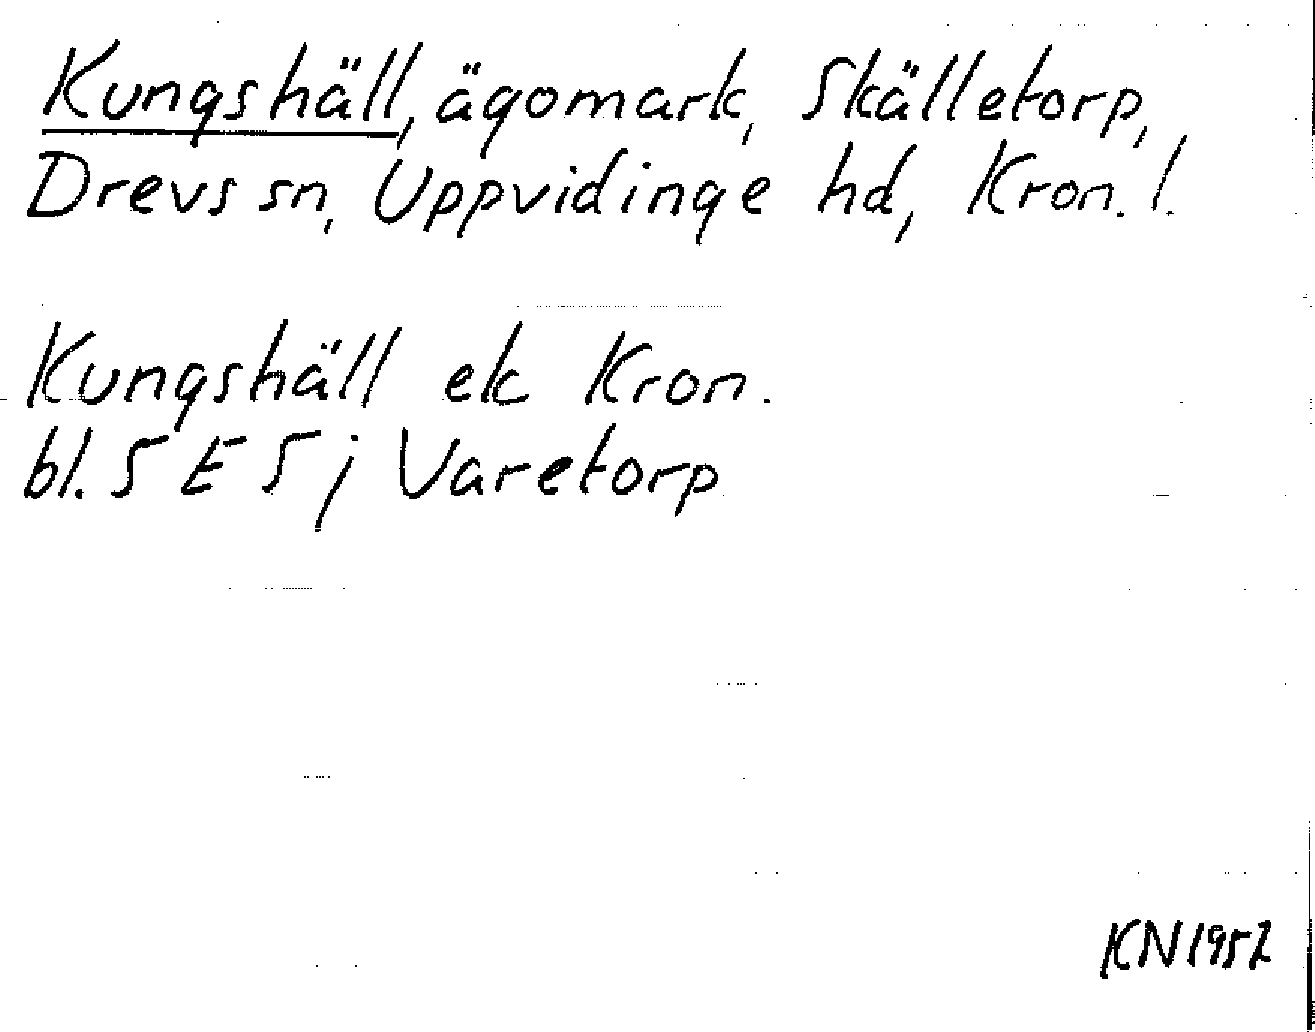 Kungshäll, ägomark, Skälletorp,
Drevs sn, Uppvidinge hd, Kron. l.
Kungshäll ek Kron.
bl. 5 E 5 j Varetorp
KN 1952